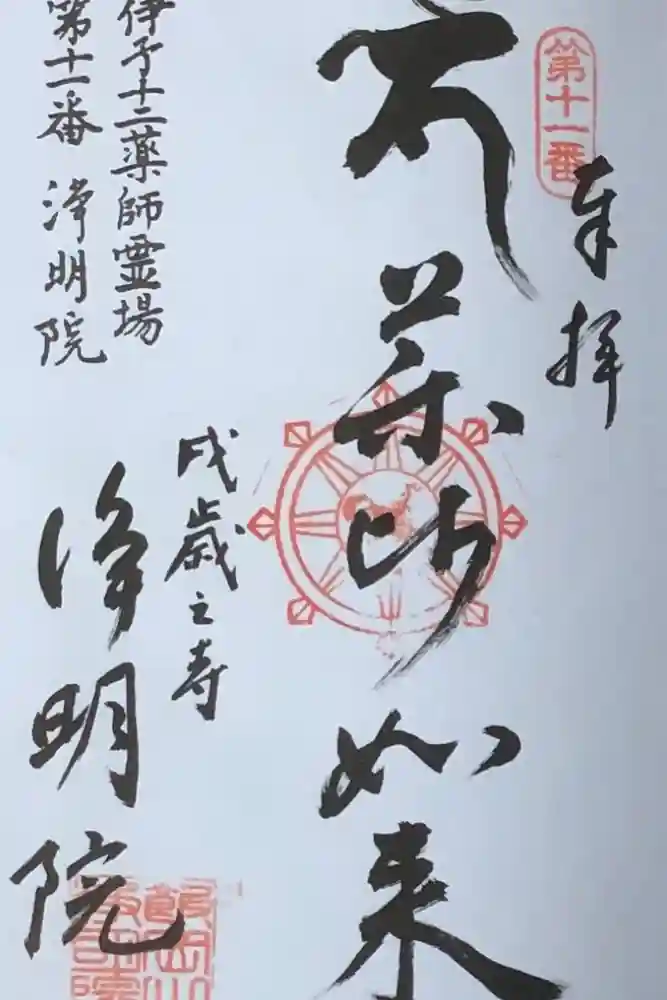 第十一番
奉拝
薬師如来
戌歳之寺
伊予十二薬師霊場
第十一番 浄明院
浄明院